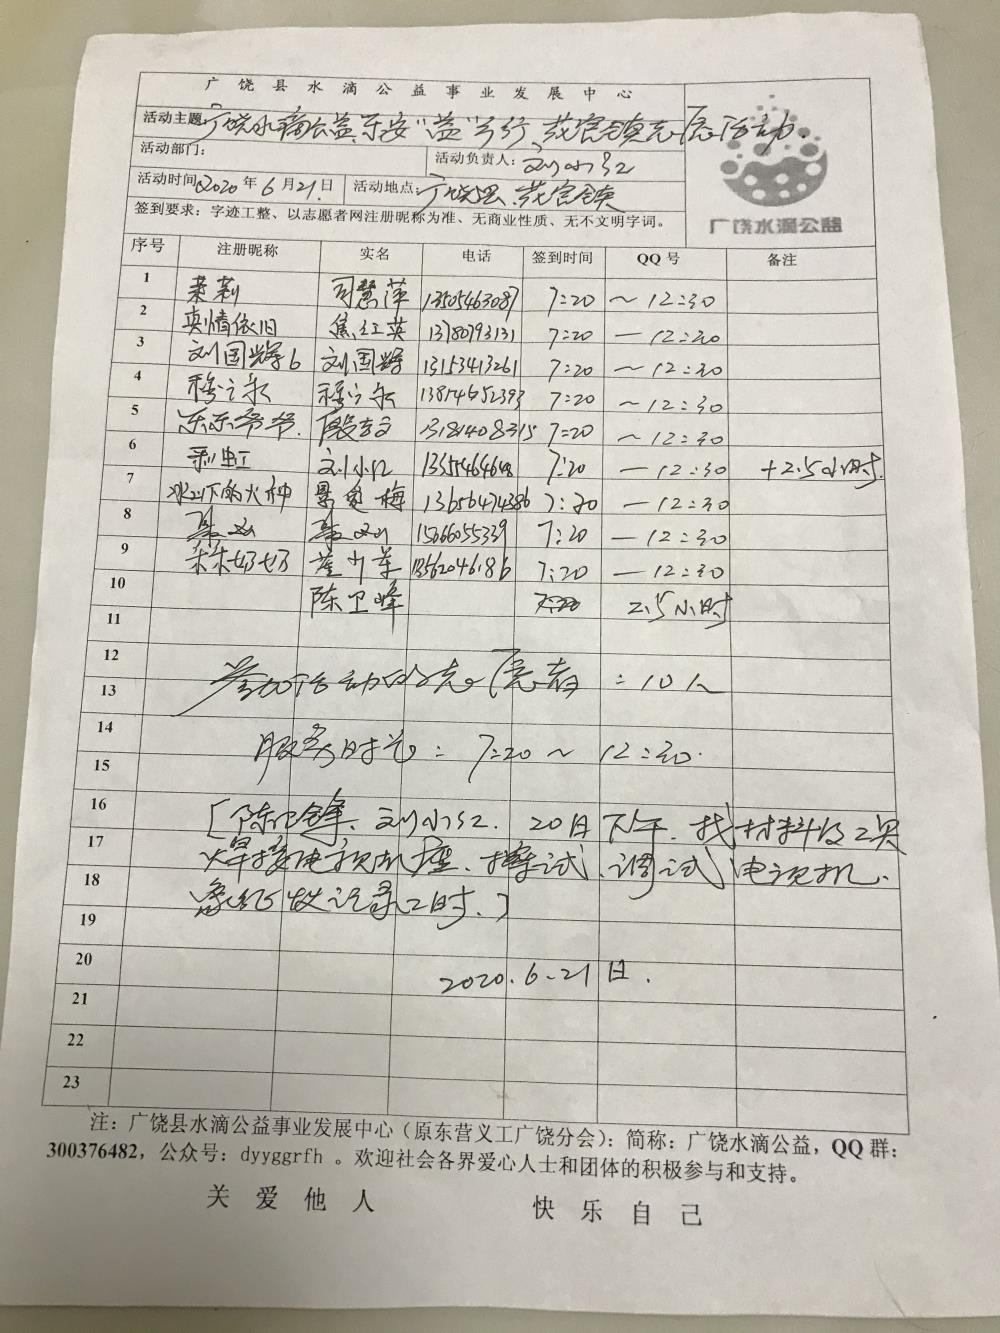 广饶县水滴公益事业发展中心
活动主题:广饶水滴公益乐安“益”行,花官镇志愿活动.
活动部门: 活动负责人:刘小红
活动时间:2020年6月21日 活动地点:广饶县.花官镇
签到要求:字迹工整、以志愿者网注册昵称为准、无商业性质、无不文明字词。
广饶水滴公益
序号 注册昵称 实名 电话 签到时间 QQ号 备注
1 茉莉 司慧萍 13505463087 7:20 ~12:30
2 真情依旧 焦红英 13780793131 7:20 —12:30
3 刘国辉6 刘国辉 13153413261 7:20 —12:30
4 7:20 ~12:30
5 东东爷爷. 13181408315 7:20 ~12:30
6 彩虹 刘小红 7:20 —12:30 +2.5小时.
7 冰山下的火种 13656474386 7:20 —12:30
8 15066055339 7:20 —12:30
9 13562046186 7:20 —12:30
10 陈卫峰 7:20 2.5小时
11
12
参加活动的志愿者:10人
13
14
服务时长:7:20~12:30.
15
16
[陈卫锋、刘小红.20日下午.找材料及工具
17
焊接电视机座.擦试、调试电视机.
18
19
20
2020.6-21日.
21
22
23
注:广饶县水滴公益事业发展中心(原东营义工广饶分会):简称:广饶水滴公益,QQ群:
300376482,公众号:dyyggrfh。欢迎社会各界爱心人士和团体的积极参与和支持。
关爱他人 快乐自己